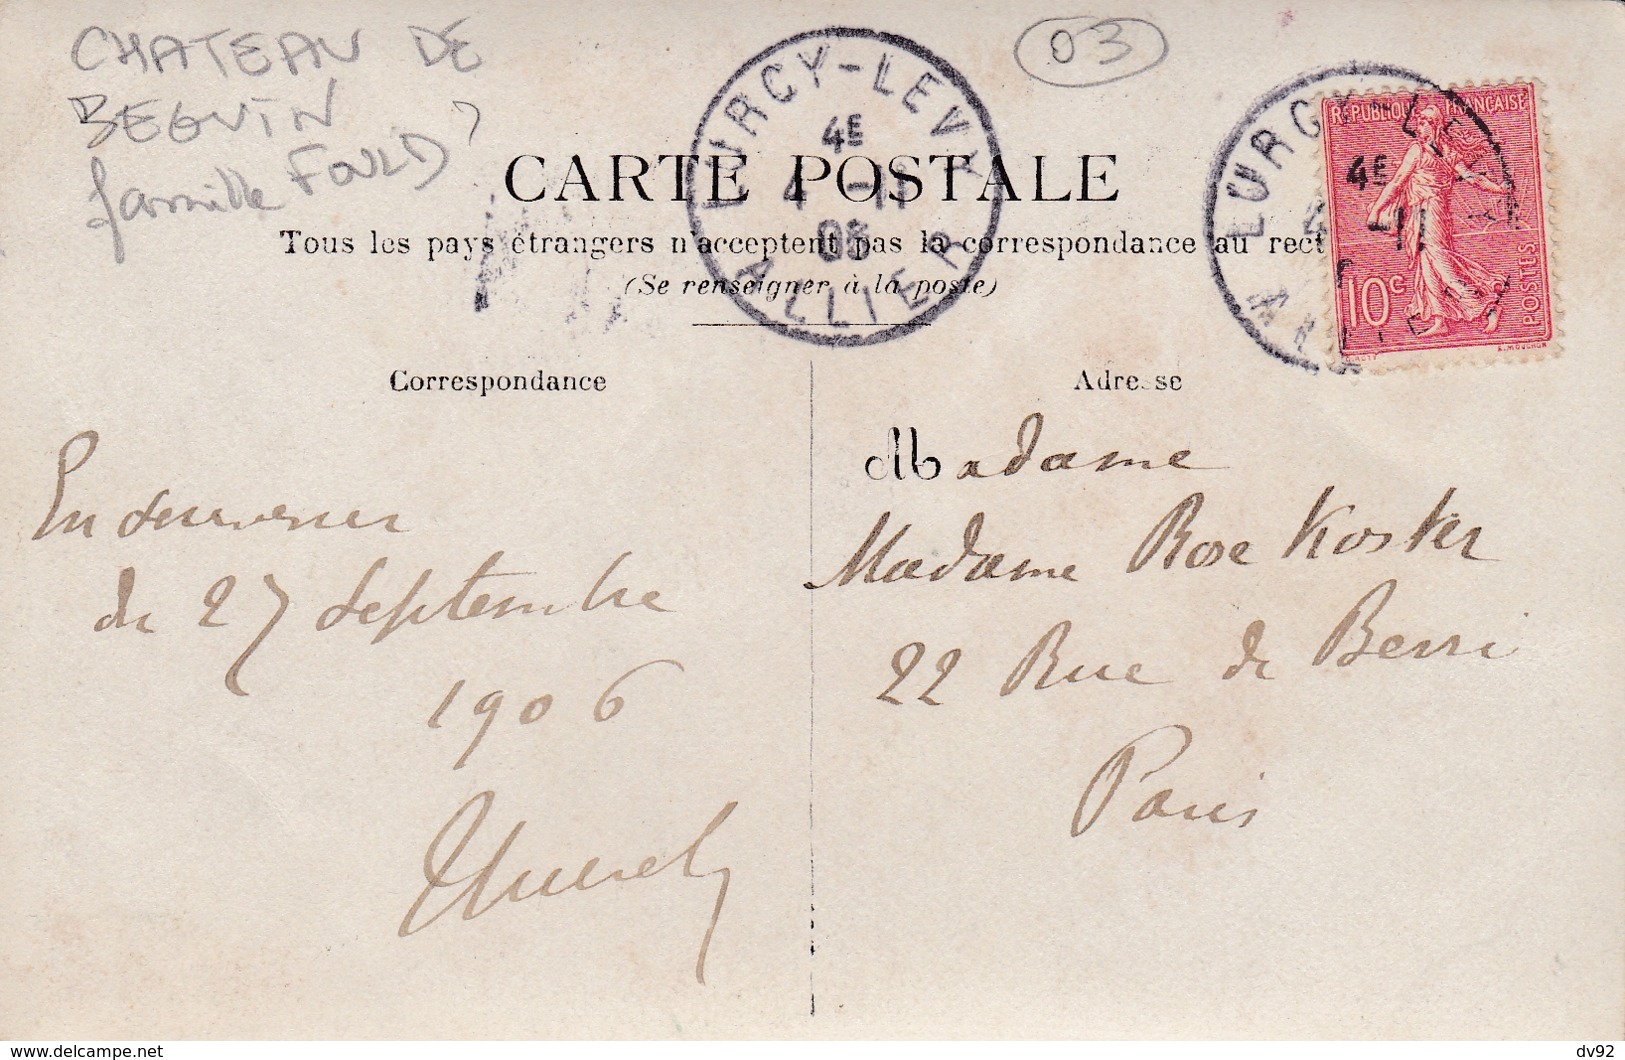 CHATEAU DE
BEGUIN
famille FOULD ?
03
LURCY-LEVY
4E
4 -11
ALLIER
LURCY-LEVY
4E
4 -11
ALLIER
REPUBLIQUE FRANÇAISE
10c
POSTES
O. ROTY
E. MOUCHON
CARTE POSTALE
Tous les pays étrangers n'acceptent pas la correspondance au rect
(Se renseigner à la poste)
Correspondance
Adresse
En souvenir
du 27 Septembre
1906
Madame
Madame Rose Koster
22 Rue de Berri
Paris
delcampe.net
dv92